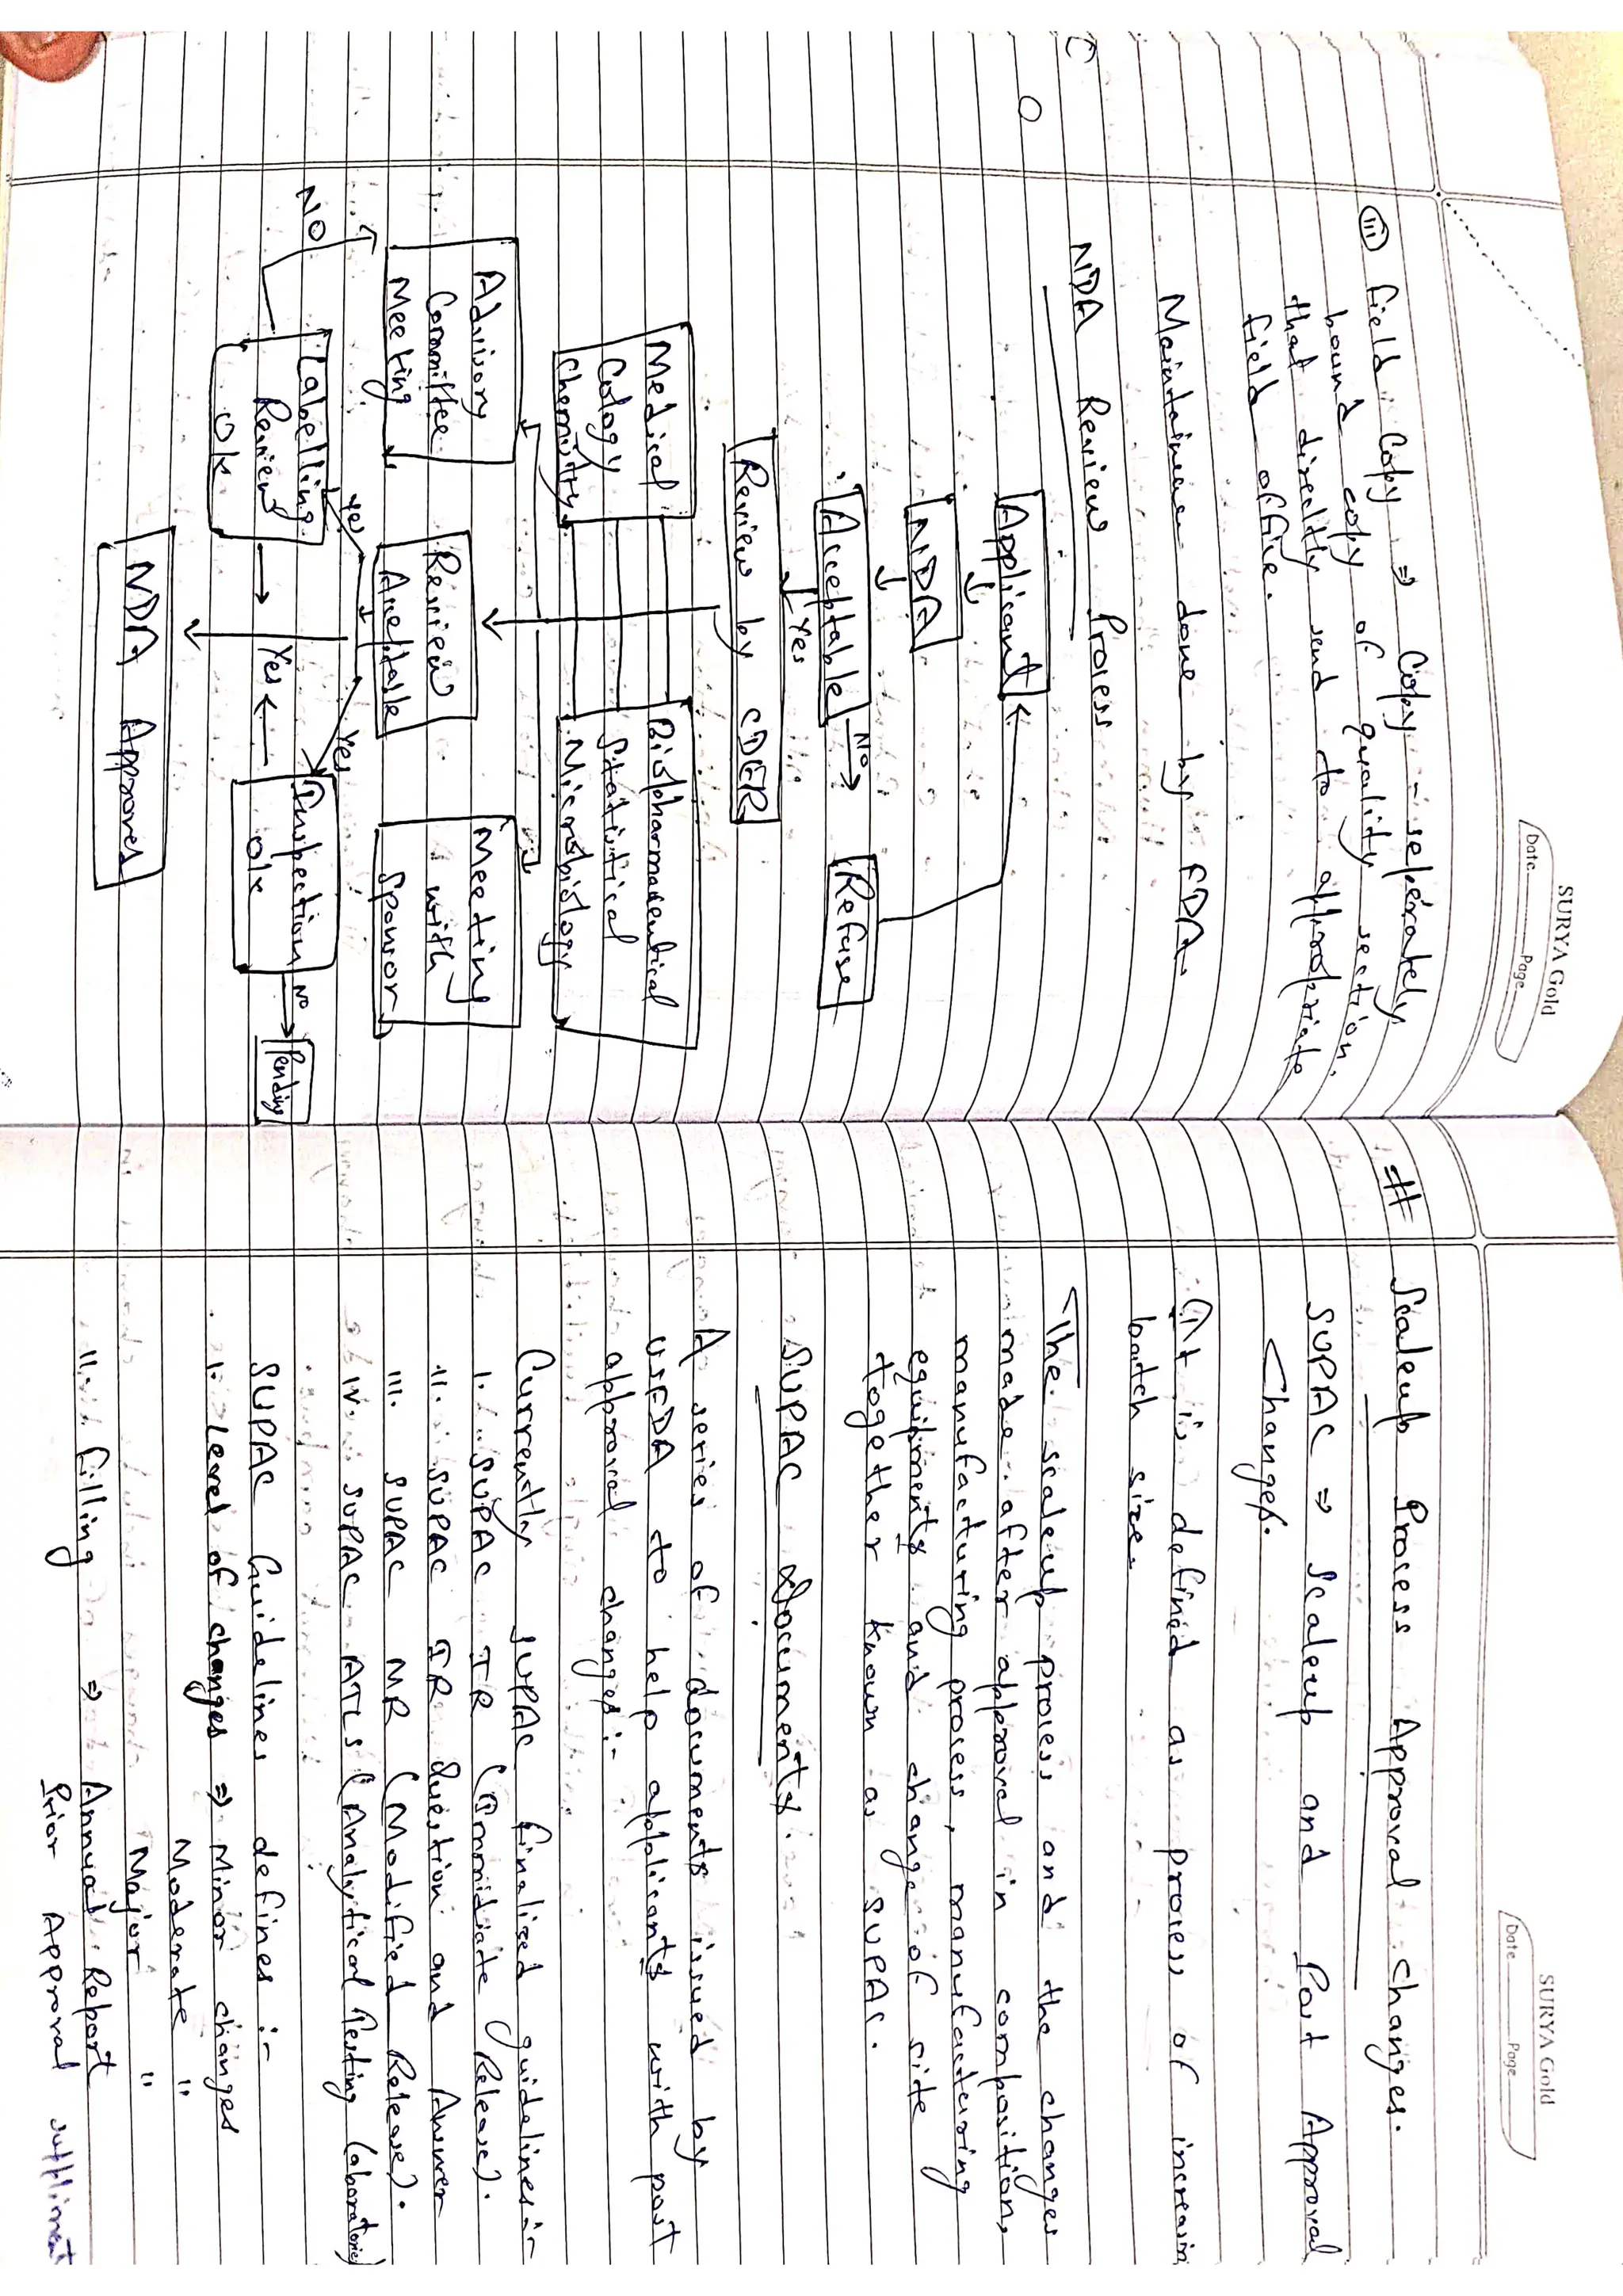 SURYA Gold
Date Page
(iii) Field Copy ⇒ Copy - seperately
bound copy of quality section.
that directly send to appropriate
field office.
Maintainence done by FDA
NDA Review Process
Applicant
NDA
Acceptable No → Refuse
Yes
Review by CDER
Medical
Cology
Chemistry
Biopharmaceutical
Statistical
Microbiology
Advisory
Committee
Meeting
Review
Acceptable
Meeting
with
Sponsor
NO
Yes
Yes
Labelling
Review
OK
Yes
Inspection
Ok
No
Pending
NDA Approved
SURYA Gold
Date Page
# Scaleup Process Approval changes.
SUPAC ⇒ Scaleup and Post Approval
Changes.
It is defined as process of increasin
batch size.
The scaleup process and the changes
made after approval in composition,
manufacturing process, manufacturing
equipments and change of site
together known as SUPAC.
SUPAC Documents
A series of documents issued by
USFDA to help applicants with post
approval changes :-
Currently SUPAC finalized guidelines :-
I. SUPAC IR (Immidiate Release).
II. SUPAC IR Question and Answer
III. SUPAC MR (Modified Release).
IV. SUPAC ATLS (Analytical Testing Laboratories)
SUPAC Guidelines defines :-
I. Level of changes ⇒ Minor changes
Moderate "
Major "
II. Filling ⇒ Annual Report
Prior Approval suppliment